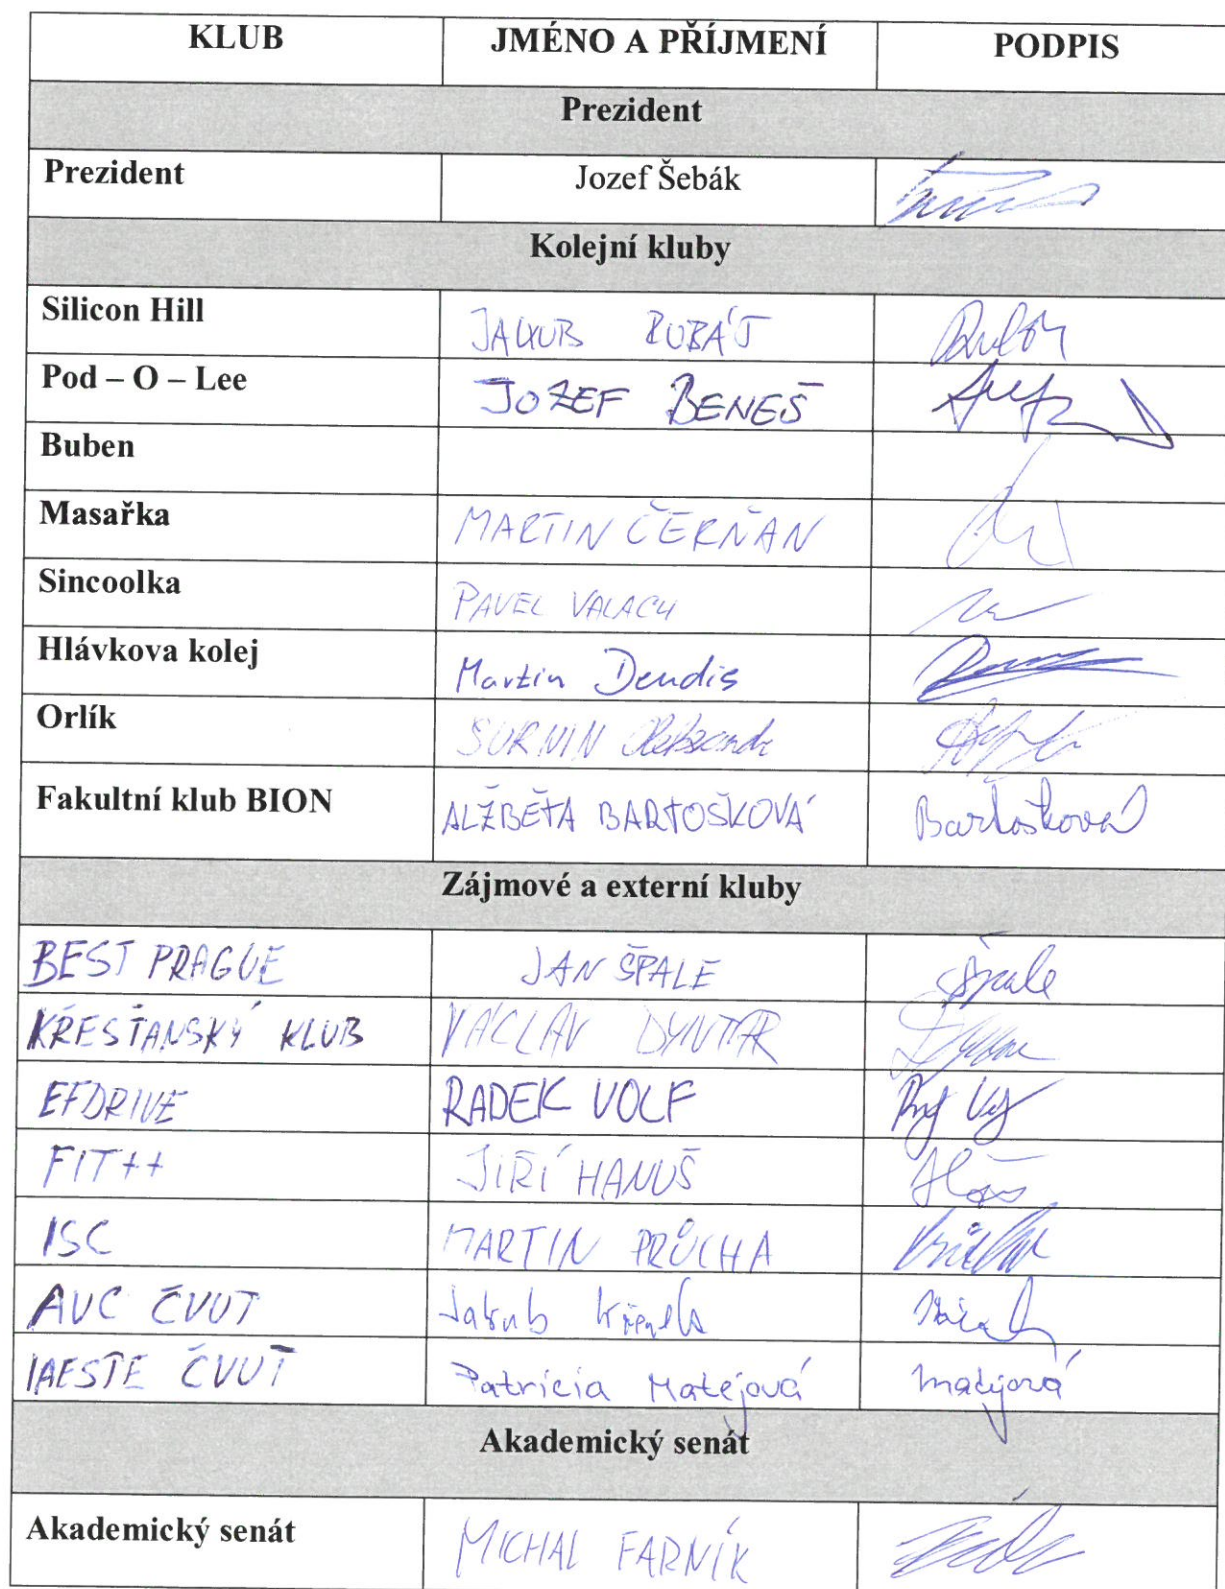 KLUB JMÉNO A PŘÍJMENÍ PODPIS
Prezident
Prezident Jozef Šebák
Kolejní kluby
Silicon Hill JAKUB
Pod – O – Lee JOZEF BENEŠ
Buben
Masařka MARTIN ČERŇAN
Sincoolka PAVEL VALACH
Hlávkova kolej Martin Dendis
Orlík SURNIN
Fakultní klub BION ALŽBĚTA BARTOŠKOVÁ Bartošková
Zájmové a externí kluby
BEST PRAGUE JAN ŠPALE Špale
KŘESŤANSKÝ KLUB VÁCLAV DYNTAR
EFDRIVE RADEK VOLF
FIT++ JIŘÍ HANUŠ
ISC MARTIN PRŮCHA
AVC ČVUT Jakub
IAESTE ČVUT Patricia Matejová Matejová
Akademický senát
Akademický senát MICHAL FARNÍK